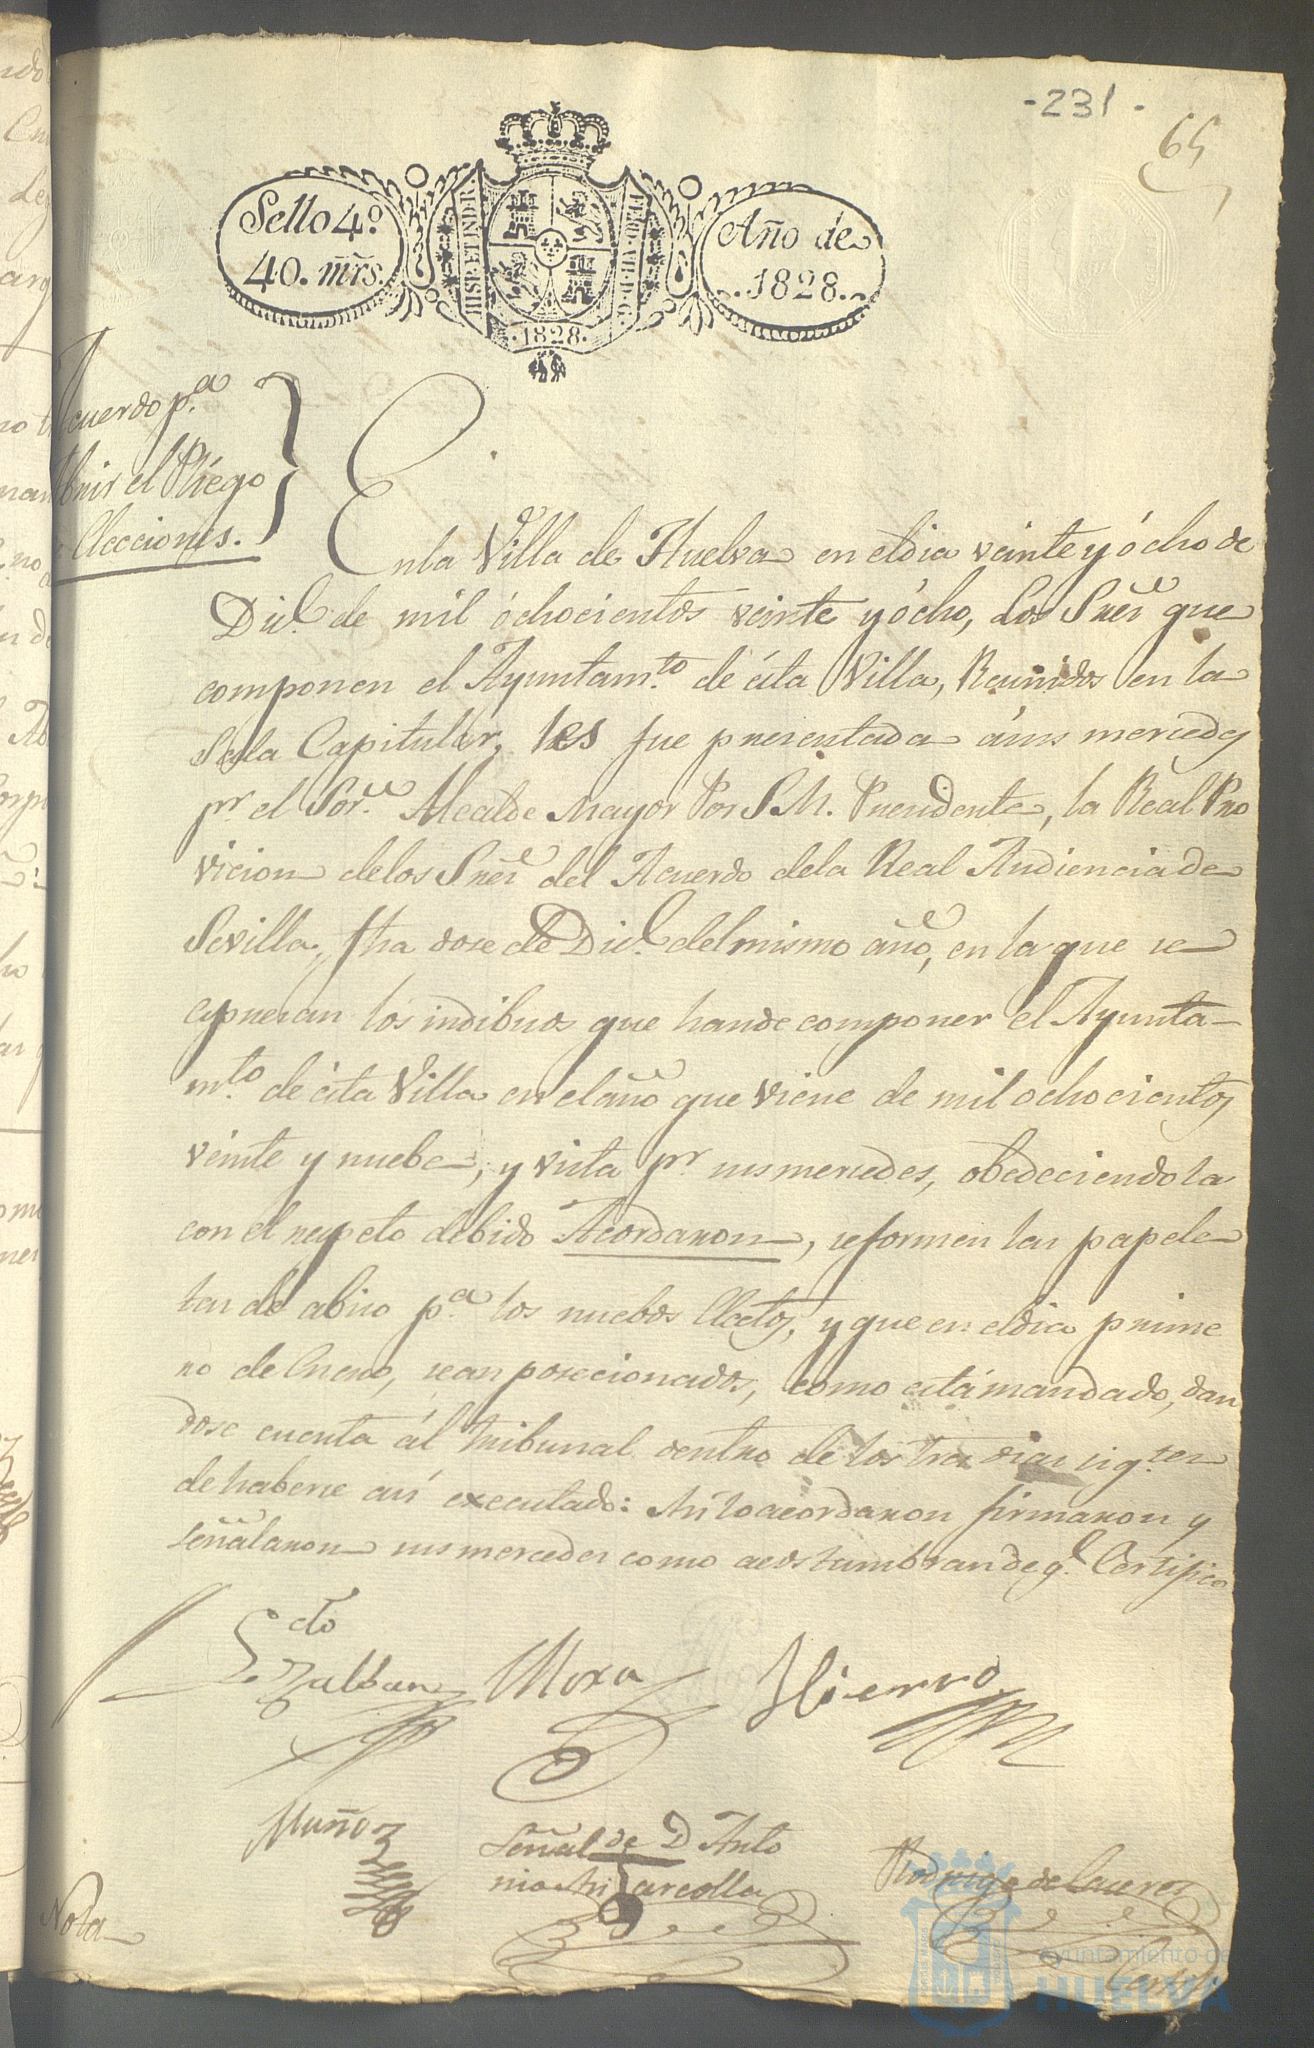 - 231 -
65
Sello 4.º
40. mr̃s.
HISP. ET IND. R.
FERD. VII. D. G.
1828.
Año de
1828.
Acuerdo p.ª
abrir el Pliego
Elecciones.
En la Villa de Huelva en el dia veinte y ócho de
Dic.e de mil óchocientos veinte y ócho, Los Sres que
componen el Ayuntam.to de ésta Villa, Reunidos en la
Sala Capitular, les fue presentada ásus mercedes
pr. el Sor. Alcalde Mayor Por S.M. Presidente, la Real Pro
vicion delos Sres del Acuerdo dela Real Audiencia de
Sevilla, fha dose de Dic.e del mismo año, en la que se
espresan los indibuos que hande componer el Ayunta-
m.to de ésta Villa en el año que viene de mil ochocientos
veinte y nuebe; y vista pr. sus mercedes, obedeciendola
con el respeto debido Acordaron, se formen las papele
tas de abiso p.ª los nuebos Electos, y que en el dia prime
ro de Enero, sean posecionados, como está mandado, dan
dose cuenta ál tribunal dentro de los tres dias sig.tes
de haberse así executado: Asi lo acordaron firmaron y
señalaron sus mercedes como acostumbran de q.e Certifico
Zalban
Mora
Hierro
Muñoz
Señal de D Anto
nio Garcolla
Rodrigo de
Nota
ayuntamiento de
HUELVA